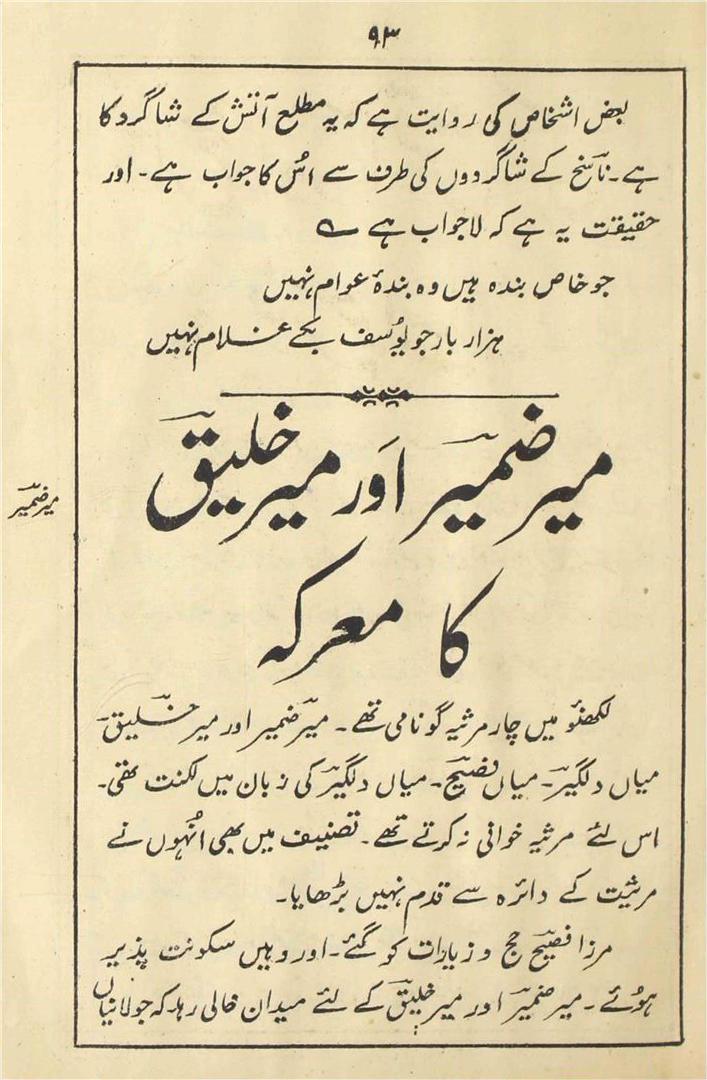 ۹۳
بعض اشخاص کی روایت ہے کہ یہ مطلع آتش کے شاگرد کا
ہے۔ ناسخ کے شاگردوں کی طرف سے اُس کا جواب ہے۔ اور
حقیقت یہ ہے کہ لاجواب ہے ؎
جو خاص بندہ ہیں وہ بندۂ عوام نہیں
ہزار بار جو یوُسف بکے غلام نہیں
میر ضمیر اَور میر خلیق
میر ضمیر
کا معرکہ
لکھنؤ میں چار مرثیہ گو نامی تھے۔ میر ضمیر اور میر خلیق۔
میاں دلگیر۔ میاں فصیح۔ میاں دلگیر کی زبان میں لکنت تھی۔
اس لئے مرثیہ خوانی نہ کرتے تھے۔ تصنیف میں بھی اُنہوں نے
مرثیت کے دائرہ سے قدم نہیں بڑھایا۔
مرزا فصیح حج و زیارات کو گئے۔ اور وہیں سکونت پذیر
ہوُئے۔ میر ضمیر اور میر خلیق کے لئے میدان خالی رہا۔ کہ جولانیاں